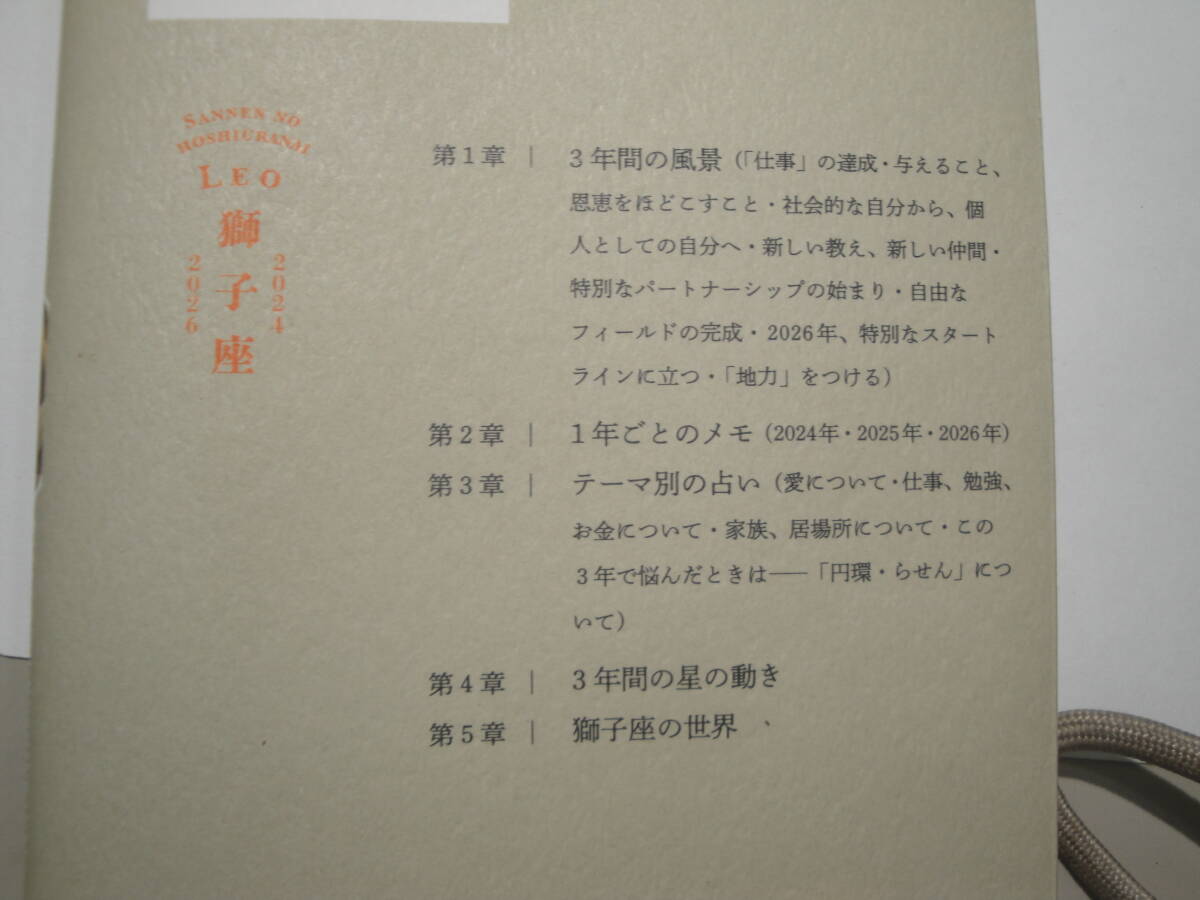 SANNEN NO
HOSHIURANAI
LEO
獅子座
2024
2026
第1章｜3年間の風景（「仕事」の達成・与えること、
恩恵をほどこすこと・社会的な自分から、個
人としての自分へ・新しい教え、新しい仲間・
特別なパートナーシップの始まり・自由な
フィールドの完成・2026年、特別なスタート
ラインに立つ・「地力」をつける）
第2章｜1年ごとのメモ（2024年・2025年・2026年）
第3章｜テーマ別の占い（愛について・仕事、勉強、
お金について・家族、居場所について・この
3年で悩んだときは——「円環・らせん」につ
いて）
第4章｜3年間の星の動き
第5章｜獅子座の世界